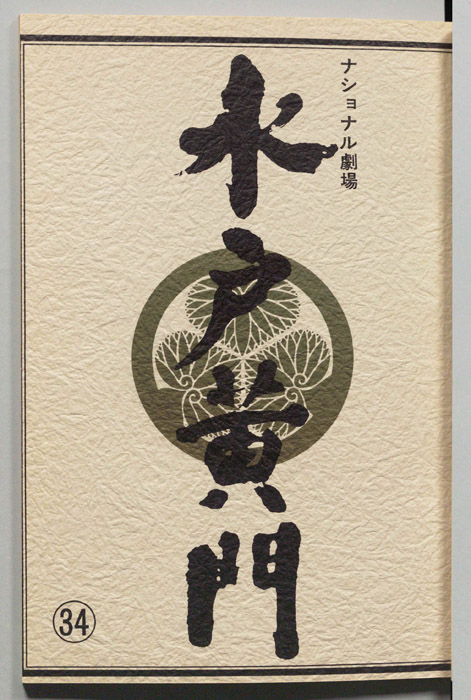 ナショナル劇場
水戸黄門
34